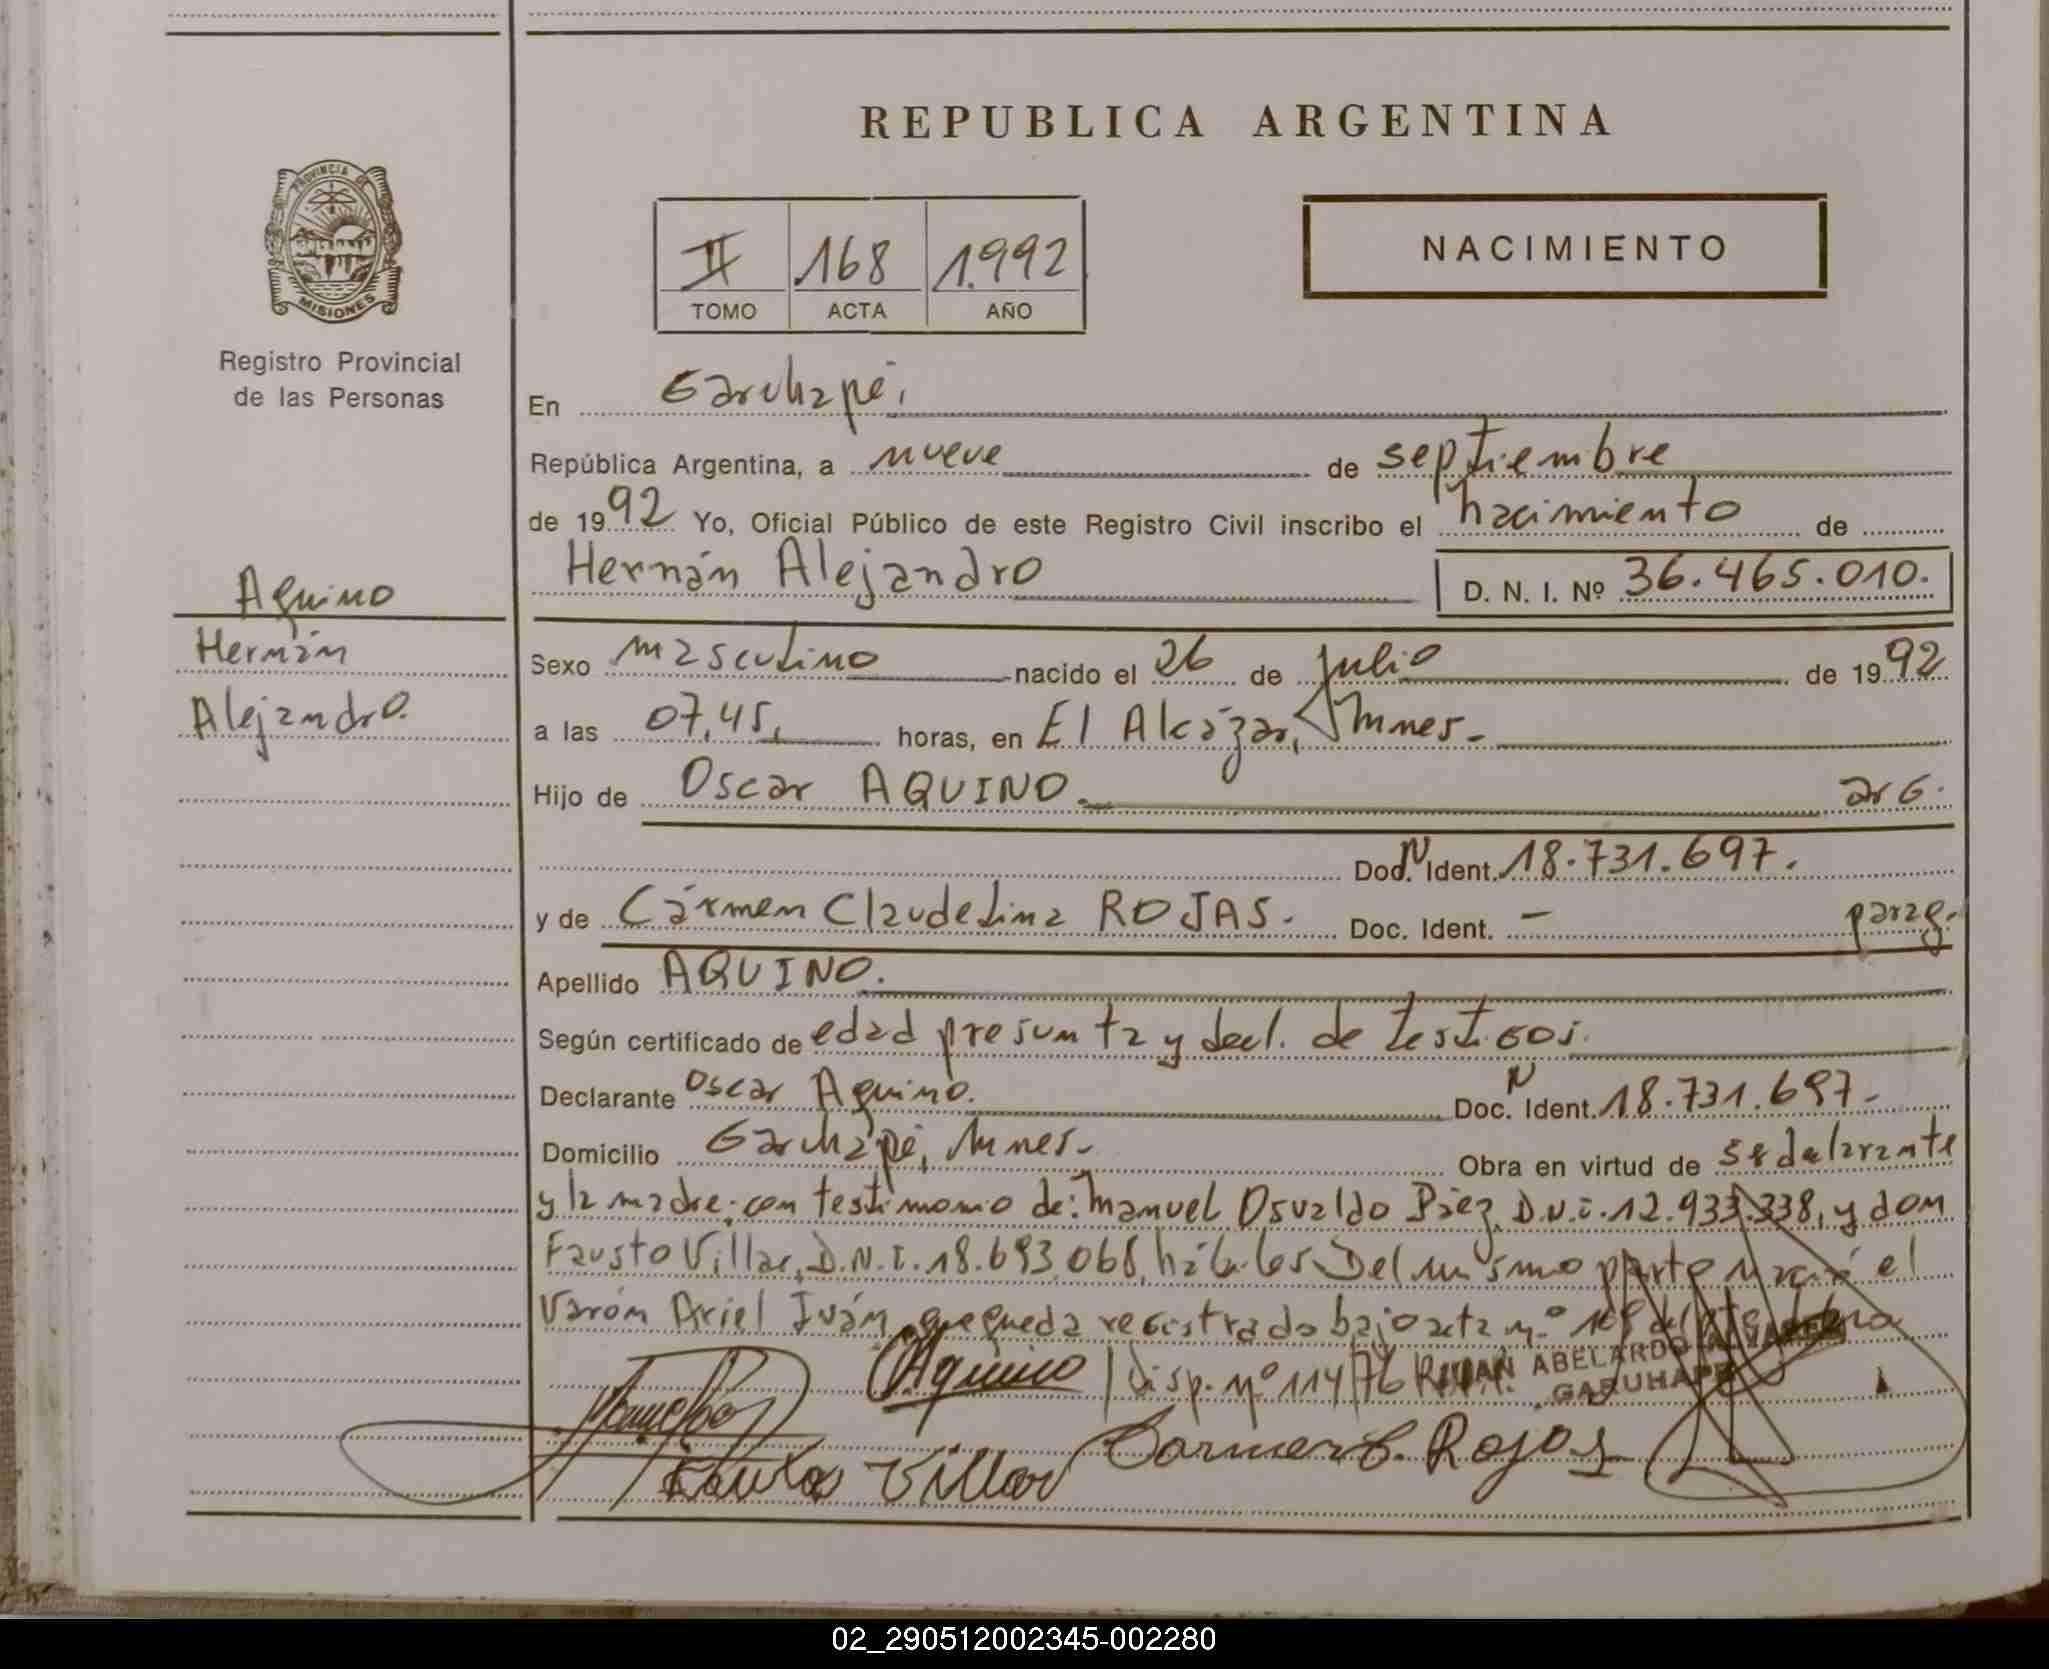 REPUBLICA ARGENTINA
PROVINCIA DE
MISIONES
Registro Provincial
de las Personas
II 168 1.992
TOMO ACTA AÑO
NACIMIENTO
En Garuhapé,
República Argentina, a nueve de septiembre
de 1992 Yo, Oficial Público de este Registro Civil inscribo el nacimiento de
Hernán Alejandro D. N. I. Nº 36.465.010.
Aquino
Hernán
Alejandro.
Sexo masculino nacido el 26 de julio de 1992
a las 07,45, horas, en El Alcázar, Mnes.-
Hijo de Oscar AQUINO. arg.
Doc. N Ident. 18.731.697.
y de Cármen Claudelina ROJAS. Doc. Ident. - parag.
Apellido AQUINO.
Según certificado de edad presunta y decl. de testigos.
Declarante Oscar Aquino. Doc. N Ident. 18.731.697.-
Domicilio Garuhapé, Mnes.- Obra en virtud de ser declarante
y la madre; con testimonio de: Manuel Osvaldo Báez, D.N.I. 12.933.338, y don
Fausto Villar, D.N.I. 18.693.068, hábiles Del mismo parto nació el
Varón Ariel Iván, que queda registrado bajo acta nº 169 del
OAquino Disp. nº 114/76 R
JUAN ABELARDO ALVAREZ
GARUHAPE
Carmen C. Rojas
Fausto Villar
02_290512002345-002280